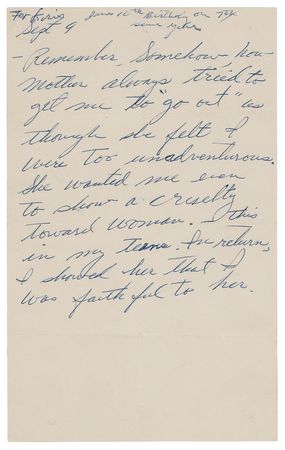 Sept 9
Birthday on
same
- Remember, Somehow, how
mother always tried to
get me to "go out" as
though she felt I
were too unadventurous.
She wanted me even
to show a cruelty
toward woman. This
in my teens. In return,
I showed her that I
was faithful to her.